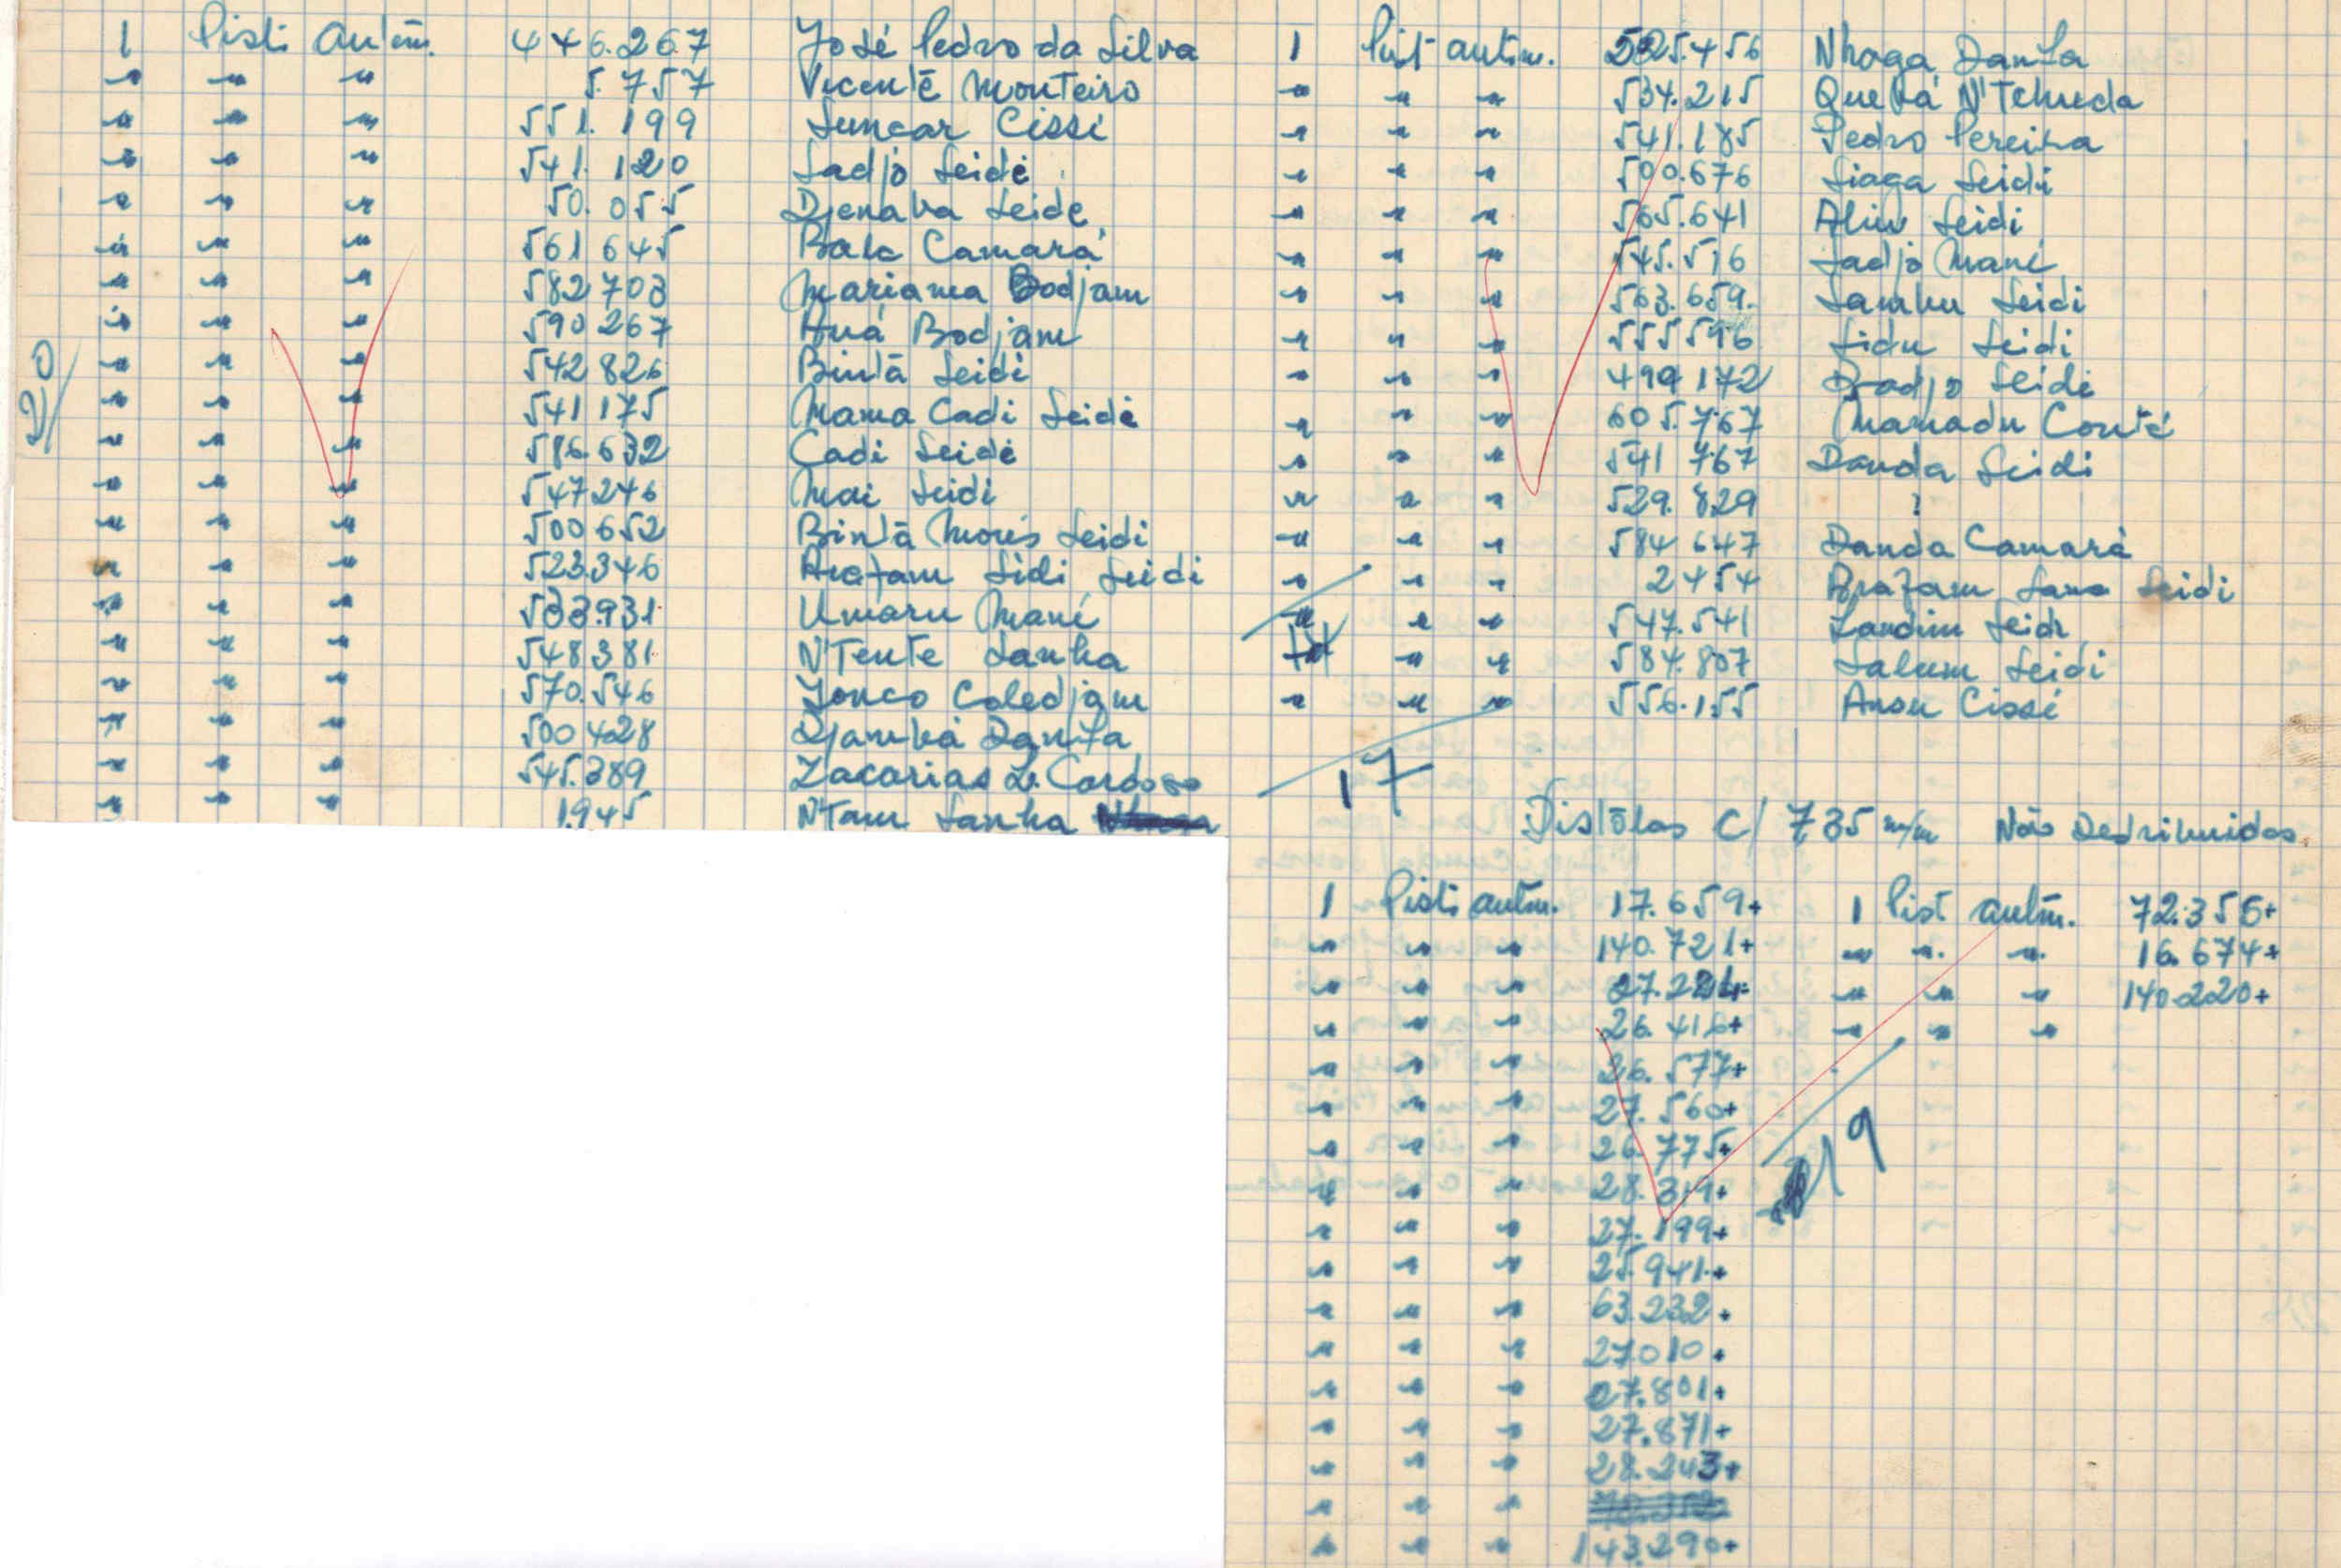 1 Pist. autom. 446.267 José Pedro da Silva
" " " 5.757 Vicente Monteiro
" " " 551.199 Suncar Cissé
" " " 541.120 Sadjó Seidi
" " " 50.055 Djenaba Seide
" " " 561645 Bala Camará
" " " 582703 Mariama Bodjam
" " " 590267 Auá Bodjam
" " " 542826 Bintã Seidi
" " " 541175 Mama Cadi Seidi
" " " 586.632 Cadi Seidi
" " " 547246 Mai Seidi
" " " 500652 Bintã Moris Seidi
" " " 523.346 Arafam Sidi Seidi
" " " 533.931 Umaru Mané
" " " 548381 N'Tente Sanha
" " " 570.546 Jonco Coledjam
" " " 500428 Djamba Danfa
" " " 545.389 Zacarias L. Cardoso
" " " 1.945 N'Tam Sanha
20
1 Pist autom. 525.456 Nhaga Danfa
" " " 534.215 Quebá N'Tchuda
" " " 541.185 Pedro Pereira
" " " 500.676 Siaga Seidi
" " " 565.641 Aliu Seidi
" " " 545.516 Sadjo Mané
" " " 563.659. Sambu Seidi
" " " 555596 Sidu Seidi
" " " 499172 Djadjo Seidi
" " " 605.767 Mamadu Conté
" " " 541767 Dauda Seidi
" " " 529.829 ?
" " " 584647 Dauda Camará
" " " 2454 Arafam Sana Seidi
" " " 547.541 Landim Seidi
" " " 584.807 Salum Seidi
" " " 556.155 Ansu Cissé
17
Pistolas C/ 735 m/m Não Destribuidas
1 Pist. autm. 17.659+
" " " 140.721+
" " "
" " " 26.416+
" " " 26.577+
" " " 27.560+
" " " 26.775+
" " " 28.319+
" " " 27.199+
" " " 25.941+
" " " 63.232+
" " " 27.010+
" " " 27.801+
" " " 27.871+
" " " 28.243+
" " "
" " " 143.290+
1 Pist. autm. 72.356+
" " " 16.674+
" " " 140.220+
" " "
19